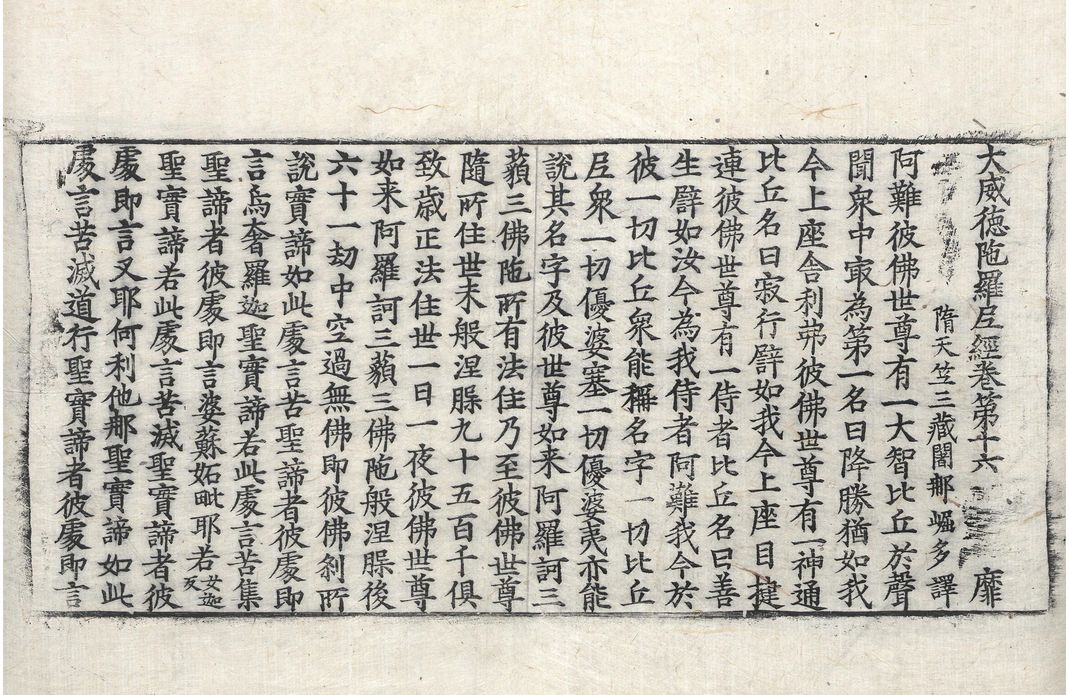 大威德陁羅尼經卷第十六 靡
隋天笁三藏闍那崛多譯
阿難彼佛世尊有一大智比丘於聲
聞衆中㝡為第一名曰降勝猶如我
今上座舍利弗彼佛世尊有一神通
比丘名曰寂行譬如我今上座目揵
連彼佛世尊有一侍者比丘名曰善
生譬如汝今為我侍者阿難我今於
彼一切比丘衆能稱名字一切比丘
尼衆一切優婆塞一切優婆夷亦能
說其名字及彼世尊如来阿羅訶三
藐三佛陁所有法住乃至彼佛世尊
隨所住世未般涅槃九十五百千俱
致歲正法住世一日一夜彼佛世尊
如来阿羅訶三藐三佛陁般涅槃後
六十一劫中空過無佛即彼佛刹所
說實諦如此處言苦聖諦者彼處即
言烏奢羅迦聖實諦若此處言苦集
聖諦者彼處即言婆蘇妬毗耶若女迦反
聖實諦若此處言苦滅聖實諦者彼
處即言又耶何利他那聖實諦如此
處言苦滅道行聖實諦者彼處即言